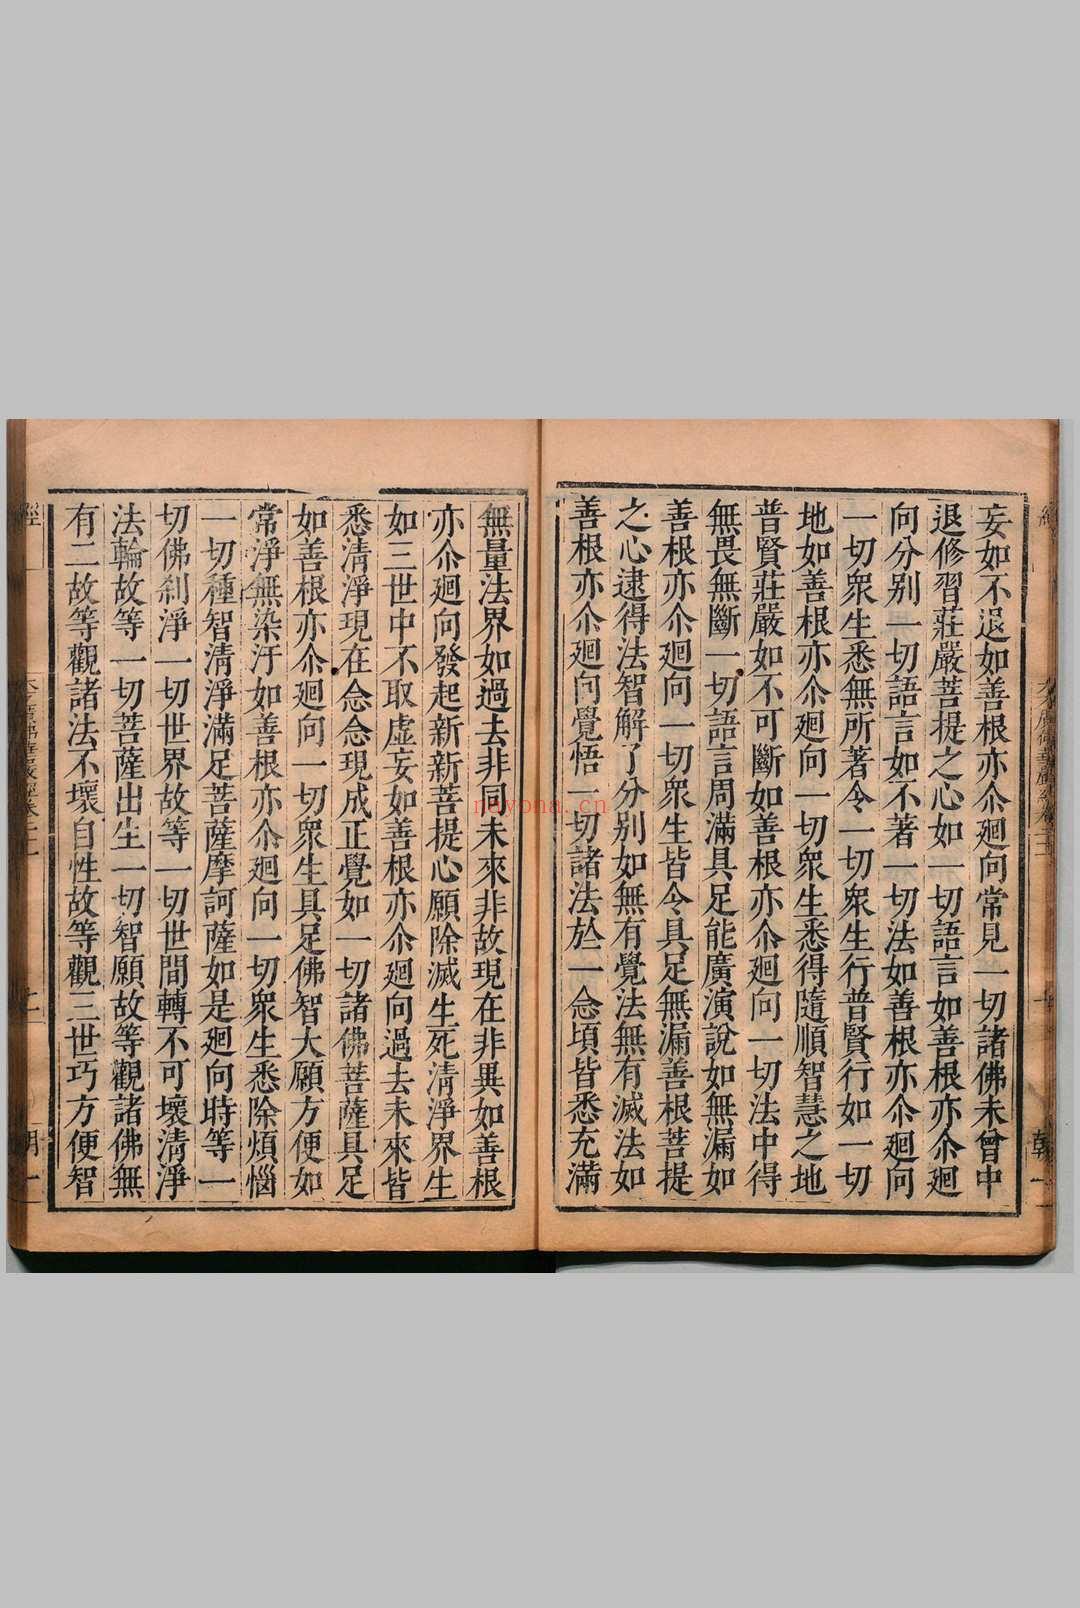 妄如不退如善根亦尒廻向常見一切諸佛未曾中
退修習莊嚴菩提之心如一切語言如善根亦尒廻
向分别一切語言如不著一切法如善根亦尒廻向
一切衆生悉無所著令一切衆生行普賢行如一切
地如善根亦尒廻向一切衆生悉得隨順智慧之地
普賢莊嚴如不可斷如善根亦尒廻向一切法中得
無畏無斷一切語言周滿具足能廣演說如無漏如
善根亦尒廻向一切衆生皆令具足無漏善根菩提
之心逮得法智解了分别如無有覺法無有滅法如
善根亦尒廻向覺悟一切諸法於一念頃皆悉充滿
無量法界如過去非同未來非故現在非異如善根
亦尒廻向發起新新菩提心願除滅生死清淨界生
如三世中不取虚妄如善根亦尒廻向過去未來皆
悉清淨現在念念現成正覺如一切諸佛菩薩具足
如善根亦尒廻向一切衆生具足佛智大願方便如
常淨無染汙如善根亦尒廻向一切衆生悉除煩惱
一切種智清淨滿足菩薩摩訶薩如是廻向時等一
切佛刹淨一切世界故等一切世間轉不可壞清淨
法輪故等一切菩薩出生一切智願故等觀諸佛無
有二故等觀諸法不壞自性故等觀三世巧方便智
nayona.cn